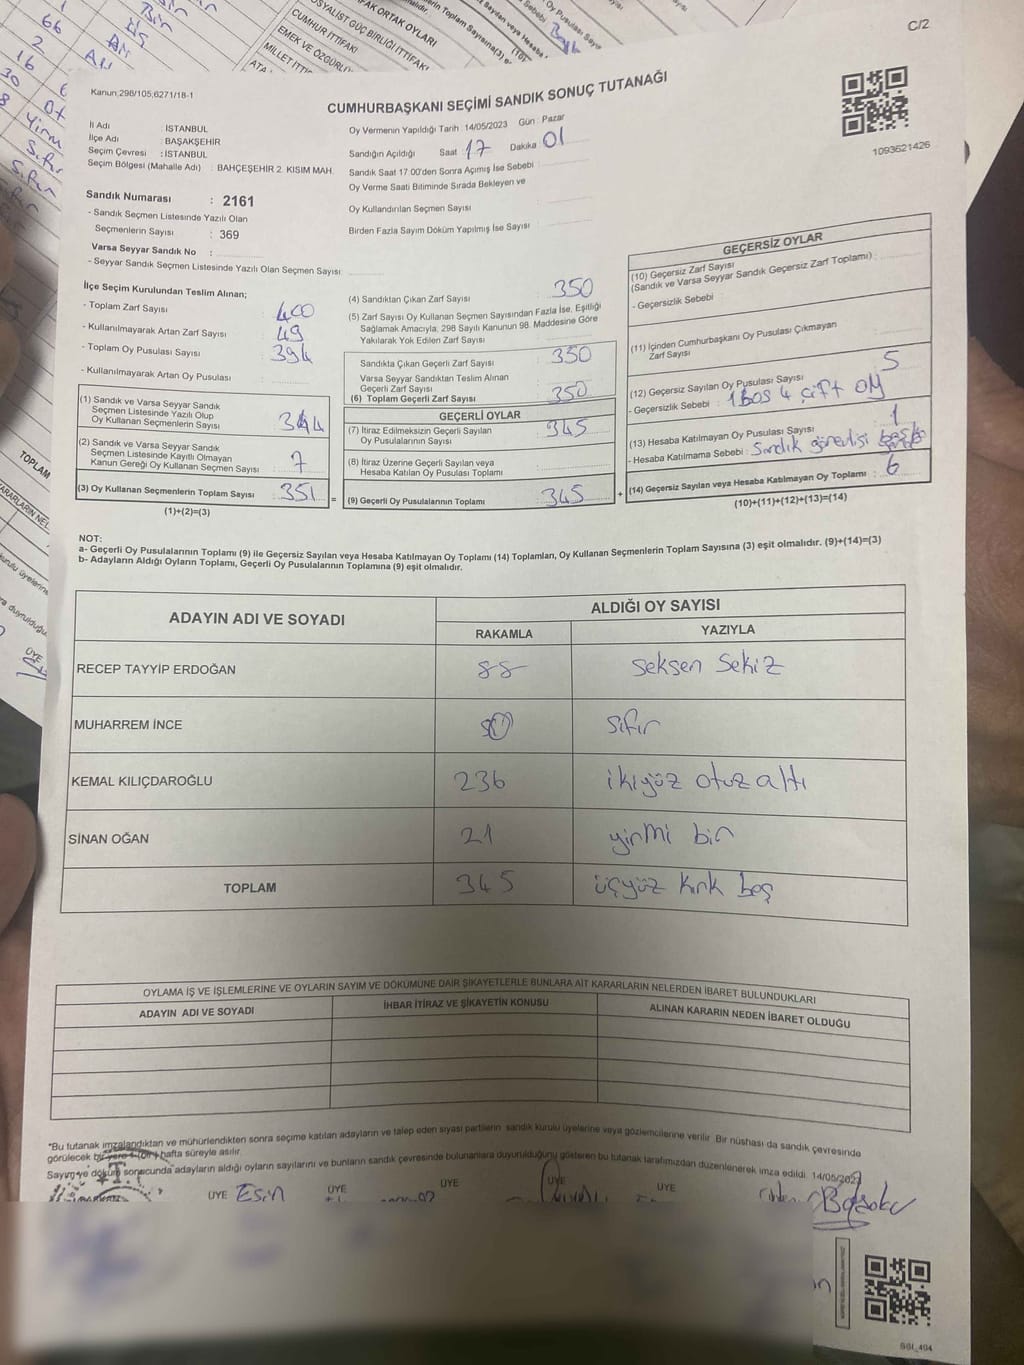 C/2
Kanun,298/105,6271/18-1
CUMHURBAŞKANI SEÇİMİ SANDIK SONUÇ TUTANAĞI
İl Adı : İSTANBUL
İlçe Adı : BAŞAKŞEHİR
Seçim Çevresi : İSTANBUL
Seçim Bölgesi (Mahalle Adı) : BAHÇEŞEHİR 2. KISIM MAH.
Oy Vermenin Yapıldığı Tarih : 14/05/2023 Gün : Pazar
Sandığın Açıldığı Saat 17 Dakika 01
Sandık Saat 17:00'den Sonra Açımış İse Sebebi :
Oy Verme Saati Bitiminde Sırada Bekleyen ve
Oy Kullandırılan Seçmen Sayısı :
Birden Fazla Sayım Döküm Yapılmış İse Sayısı :
1093621426
Sandık Numarası : 2161
- Sandık Seçmen Listesinde Yazılı Olan
Seçmenlerin Sayısı : 369
Varsa Seyyar Sandık No :
- Seyyar Sandık Seçmen Listesinde Yazılı Olan Seçmen Sayısı
İlçe Seçim Kurulundan Teslim Alınan;
- Toplam Zarf Sayısı : 400
- Kullanılmayarak Artan Zarf Sayısı : 49
- Toplam Oy Pusulası Sayısı : 394
- Kullanılmayarak Artan Oy Pusulası :
(1) Sandık ve Varsa Seyyar Sandık
Seçmen Listesinde Yazılı Olup
Oy Kullanan Seçmenlerin Sayısı : 344
(2) Sandık ve Varsa Seyyar Sandık
Seçmen Listesinde Kayıtlı Olmayan
Kanun Gereği Oy Kullanan Seçmen Sayısı : 7
(3) Oy Kullanan Seçmenlerin Toplam Sayısı : 351 =
(1)+(2)=(3)
(4) Sandıktan Çıkan Zarf Sayısı : 350
(5) Zarf Sayısı Oy Kullanan Seçmen Sayısından Fazla İse, Eşitliği
Sağlamak Amacıyla, 298 Sayılı Kanunun 98. Maddesine Göre
Yakılarak Yok Edilen Zarf Sayısı :
Sandıkta Çıkan Geçerli Zarf Sayısı : 350
Varsa Seyyar Sandıktan Teslim Alınan
Geçerli Zarf Sayısı :
(6) Toplam Geçerli Zarf Sayısı : 350
GEÇERLİ OYLAR
(7) İtiraz Edilmeksizin Geçerli Sayılan
Oy Pusulalarının Sayısı : 345
(8) İtiraz Üzerine Geçerli Sayılan veya
Hesaba Katılan Oy Pusulası Toplamı :
(9) Geçerli Oy Pusulalarının Toplamı : 345 +
GEÇERSİZ OYLAR
(10) Geçersiz Zarf Sayısı
(Sandık ve Varsa Seyyar Sandık Geçersiz Zarf Toplamı) :
- Geçersizlik Sebebi :
(11) İçinden Cumhurbaşkanı Oy Pusulası Çıkmayan
Zarf Sayısı :
(12) Geçersiz Sayılan Oy Pusulası Sayısı : 5
- Geçersizlik Sebebi : 1 Boş 4 çift oy
(13) Hesaba Katılmayan Oy Pusulası Sayısı : 1
- Hesaba Katılmama Sebebi : Sandık görevlisi
(14) Geçersiz Sayılan veya Hesaba Katılmayan Oy Toplamı : 6
(10)+(11)+(12)+(13)=(14)
NOT:
a- Geçerli Oy Pusulalarının Toplamı (9) ile Geçersiz Sayılan veya Hesaba Katılmayan Oy Toplamı (14) Toplamları, Oy Kullanan Seçmenlerin Toplam Sayısına (3) eşit olmalıdır. (9)+(14)=(3)
b- Adayların Aldığı Oyların Toplamı, Geçerli Oy Pusulalarının Toplamına (9) eşit olmalıdır.
ADAYIN ADI VE SOYADI
ALDIĞI OY SAYISI
RAKAMLA YAZIYLA
RECEP TAYYİP ERDOĞAN 88 Seksen Sekiz
MUHARREM İNCE 0 Sıfır
KEMAL KILIÇDAROĞLU 236 ikiyüz otuz altı
SİNAN OĞAN 21 yirmi bir
TOPLAM 345 üçyüz kırk beş
OYLAMA İŞ VE İŞLEMLERİNE VE OYLARIN SAYIM VE DÖKÜMÜNE DAİR ŞİKAYETLERLE BUNLARA AİT KARARLARIN NELERDEN İBARET BULUNDUKLARI
ADAYIN ADI VE SOYADI
İHBAR İTİRAZ VE ŞİKAYETİN KONUSU
ALINAN KARARIN NEDEN İBARET OLDUĞU
*Bu tutanak imzalandıktan ve mühürlendikten sonra seçime katılan adayların ve talep eden siyasi partilerin sandık kurulu üyelerine veya gözlemcilerine verilir. Bir nüshası da sandık çevresinde
görülecek bir yere 1 (bir) hafta süreyle asılır.
Sayım ve döküm sonucunda adayların aldığı oyların sayılarını ve bunların sandık çevresinde bulunanlara duyurulduğunu gösteren bu tutanak tarafımızdan düzenlenerek imza edildi. 14/05/2023
ÜYE Esin ÜYE ÜYE ÜYE ÜYE